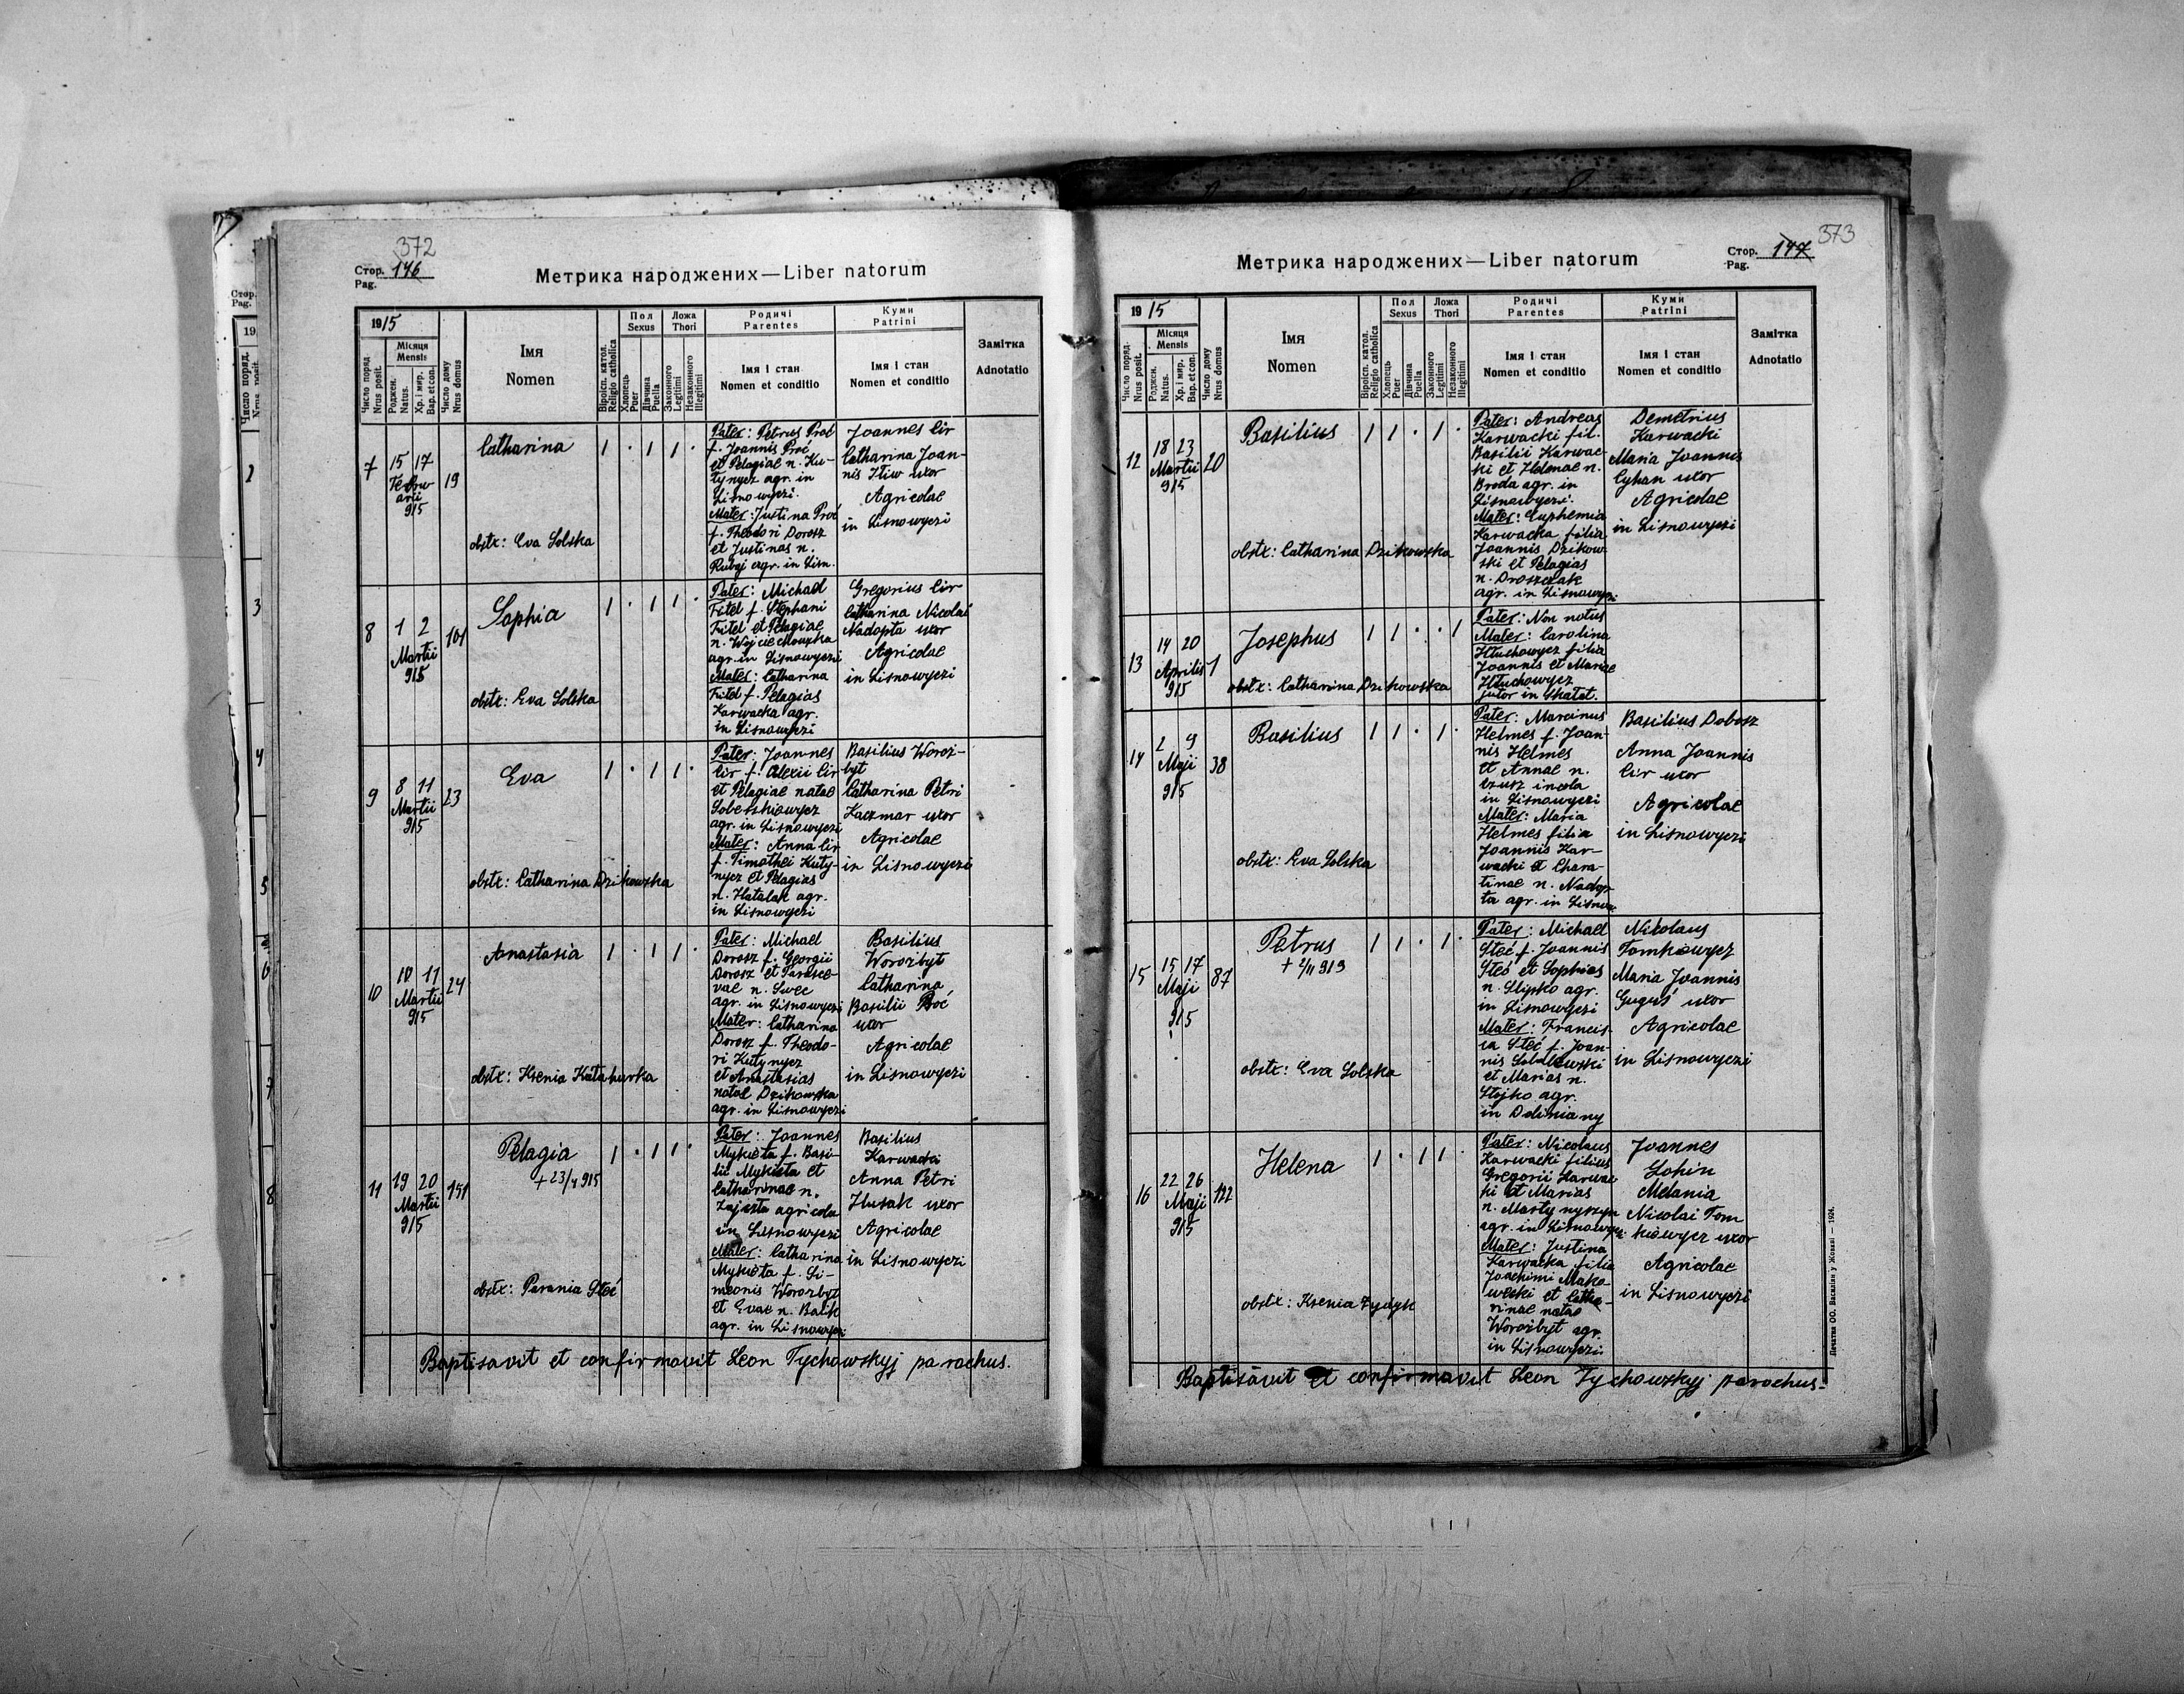 372
Стор. 146
Pag.
Метрика народжених—Liber natorum
1915
Число поряд.
Nrus posit.
Місяця
Mensis
Роджен.
Natus.
Хр. і мир.
Bap. et con.
Число дому
Nrus domus
Імя
Nomen
Віроісп. катол.
Religio catholica
Пол
Sexus
Хлопець
Puer
Дівчина
Puella
Ложа
Thori
Законного
Legitimi
Незаконного
Illegitimi
Родичі
Parentes
Імя і стан
Nomen et conditio
Куми
Patrini
Імя і стан
Nomen et conditio
Замітка
Adnotatio
7
15 17
Februarii
915
19
Catharina
obstx: Eva Solska
1 · 1 1 ·
Pater: Petrus Proć
f. Joannis Proć
et Pelagiae n. Ku-
tynycz agr. in
Lisnowyczi.
Mater: Justina Proć
f. Theodori Dorosz
et Justinas n.
agr. in Lisn.
Joannes Cir
Catharina Joan-
nis Htiw uxor
Agricolae
in Lisnowyczi
8
1 2
Martii
915
101
Sophia
obstx: Eva Solska
1 · 1 1 ·
Pater: Michael
Fitel f. Stephani
Fitel et Pelagiae
n. Wojciechowska
agr. in Lisnowyczi
Mater: Catharina
Fitel f. Pelagias
Karwacka agr.
in Lisnowyczi
Gregorius Cir
Catharina Nicolai
Nadopta uxor
Agricolae
in Lisnowyczi
9
8 11
Martii
915
23
Eva
obstx: Catharina Dzikowska
1 · 1 1 ·
Pater: Joannes
Cir f. Alexii Cir
et Pelagiae natae
agr. in Lisnowyczi
Mater: Anna Cir
f. Timothei Kuty-
nycz et Pelagias
n. Hatalak agr.
in Lisnowyczi
Basilius Woroż-
byt
Catharina Petri
Kaczmar uxor
Agricolae
in Lisnowyczi
10
10 11
Martii
915
24
Anastasia
obstx: Ksenia Katahurka
1 · 1 1 ·
Pater: Michael
Dorosz f. Georgii
Dorosz et Parasce-
vae n. Swec
agr. in Lisnowyczi
Mater: Catharina
Dorosz f. Theodo-
ri Kutynycz
et Anastasias
natae Dzikowska
agr. in Lisnowyczi
Basilius
Worożbyt
Catharina
Basilii Proć
uxor
Agricolae
in Lisnowyczi
11
19 20
Martii
915
151
Pelagia
+ 23/4 915
obstx: Parania Steć
1 · 1 1 ·
Pater: Joannes
Mykieta f. Basi-
lii Mykieta et
Catharinae n.
Zajszta agricola
in Lisnowyczi
Mater: Catharina
Mykieta f. Si-
meonis Worożbyt
et Evae n. Balik
agr. in Lisnowyczi
Basilius
Karwacki
Anna Petri
Husak uxor
Agricolae
in Lisnowyczi
Baptisavit et confirmavit Leon Tychowskyj parochus.
573
Стор. 147
Pag.
Метрика народжених—Liber natorum
1915
Число поряд.
Nrus posit.
Місяця
Mensis
Роджен.
Natus.
Хр. і мир.
Bap. et con.
Число дому
Nrus domus
Імя
Nomen
Віроісп. катол.
Religio catholica
Пол
Sexus
Хлопець
Puer
Дівчина
Puella
Ложа
Thori
Законного
Legitimi
Незаконного
Illegitimi
Родичі
Parentes
Імя і стан
Nomen et conditio
Куми
Patrini
Імя і стан
Nomen et conditio
Замітка
Adnotatio
12
18 23
Martii
915
20
Basilius
obstx: Catharina Dzikowska
1 1 · 1 ·
Pater: Andreas
Karwacki fil.
Basilii Karwac-
ki et Helenae n.
Broda agr. in
Lisnowyczi.
Mater: Euphemia
Karwacka filia
Joannis Dzikow-
ski et Pelagias
n. Droszczak
agr. in Lisnowyczi
Demetrius
Karwacki
Maria Joannis
Cyhan uxor
Agricolae
in Lisnowyczi
13
14 20
Aprilis
915
1
Josephus
obstx: Catharina Dzikowska
1 1 · · 1
Pater: Non notus
Mater: Carolina
Hłuchowycz filia
Joannis et Mariae
Hłuchowycz
sutor in Skałat.
14
2 9
Maji
915
38
Basilius
obstx: Eva Solska
1 1 · 1 ·
Pater: Marcinus
Helmes f. Joan-
nis Helmes
et Annae n.
Czusz incola
in Lisnowyczi
Mater: Maria
Helmes filia
Joannis Kar-
wacki et Chara-
tinae n. Nadop-
ta agr. in Lisnow.
Basilius Dobosz
Anna Joannis
Cir uxor
Agricolae
in Lisnowyczi
15
15 17
Maji
915
87
Petrus
+ 2/11 919
obstx: Eva Solska
1 1 · 1 ·
Pater: Michael
Steć f. Joannis
Steć et Sophias
n. Slipko agr.
in Lisnowyczi
Mater: Francis-
ca Steć f. Joan-
nis Sobolewski
et Marias n.
Stojko agr.
in Doliniany
Nikolaus
Tomkowycz
Maria Joannis
Guguś uxor
Agricolae
in Lisnowyczi
16
22 26
Maji
915
122
Helena
obstx: Ksenia Zydyk
1 · 1 1 ·
Pater: Nicolaus
Karwacki filius
Gregorii Karwac-
ki et Marias
n. Martynyszyn
agr. in Lisnowyczi
Mater: Justina
Karwacka filia
Joachimi Mako-
wecki et Catha-
rinae natae
Worożbyt agr.
in Lisnowyczi
Joannes
Hohin
Melania
Nicolai Tom-
kiewycz uxor
Agricolae
in Lisnowyczi
Baptisavit et confirmavit Leon Tychowskyj parochus.
Печатня ОО. Василіян у Жовкві — 1924.
Стор.
Pag.
19
Число поряд.
Nrus posit.
2
3
4
5
6
7
8